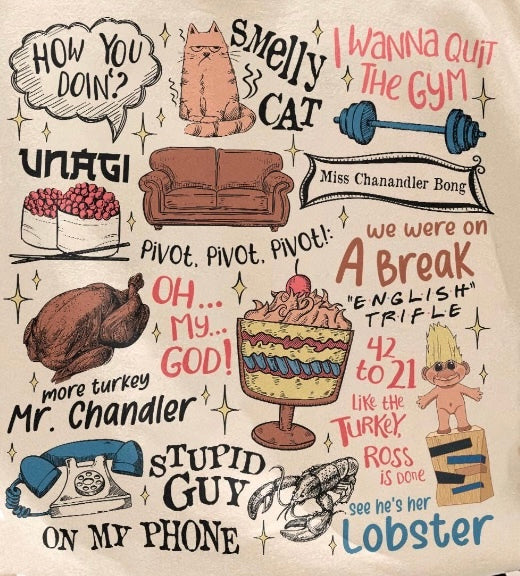 HOW YOU
DOIN'?
SMelly
CAT
I WANNA QUIT
THE GYM
UNAGI
Miss Chanandler Bong
PIVOT, PIVOT, PIVOT!:
we were on
A Break
"ENGLISH"
TRIFLE
OH...
MY...
GOD!
42
to 21
LIKE tHE
TURKEY,
ROSS
is DONE
more turkey
Mr. Chandler
STUPID
GUY
ON MY PHONE
see he's her
Lobster